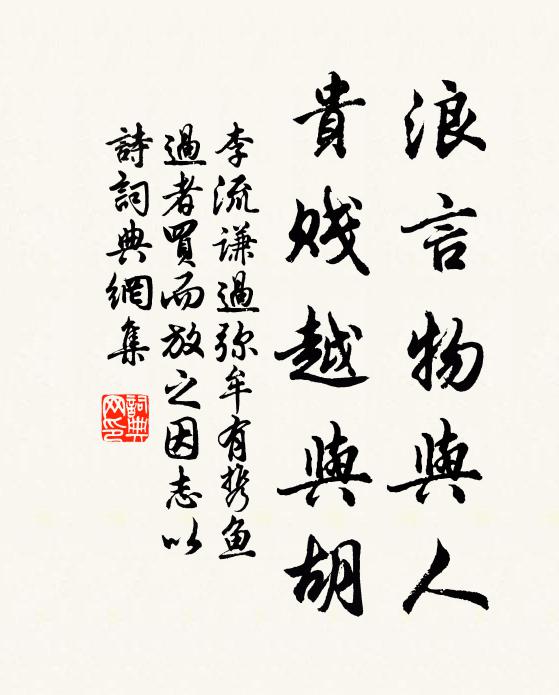 浪言物與人
貴賤越與胡
李流謙過彌牟有携魚
過者買而放之因志以
詩詞典網集
詞典網印